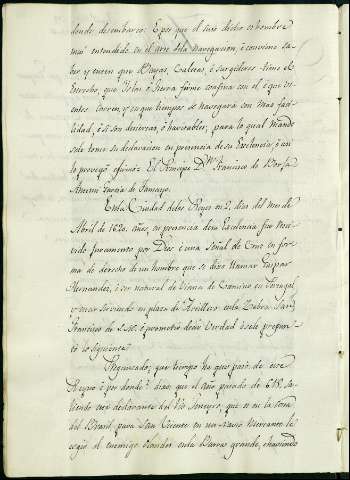 donde desembarco: E por que el suso dicho es hombre
mui entendido en el arte dela navegacion, é convino sa-
ber y enten que Bayas, Caletas, ó surgideros tiene el
estrecho, que Islas ó tierra firme confina con el é que vi-
entos corren, y en que tiempos se navegará con mas faci-
lidad, é si son desiertas, ó haveables; para lo qual mando
se le tome su declaracion en presencia de su Excelencia, é an-
lo proveyó é firmó: El Principe Dn. Francisco de Borja
Antemi Garcia de Tamayo.
En la Ciudad delos Reyes en 2 dias del mes de
Abril de 1620 años, en presencia de su Excelencia fue reci-
vido juramento por Dios é una señal de Cruz en for-
ma de derecho de un hombre que se dixo llamar Gaspar
Hernandez, é ser natural de Viana de Camino en Portugal
y estar sirviendo en plaza de Artillero en la Zabra San
Francisco de S.M. é prometio decir verdad é se le pregun-
tó lo siguiente.
Preguntado, que tiempo ha que pasó de este
Reyno é por donde? dixo que el año pasado de 618 sa-
liendo este declarante del Rio Geneyro, que es en la Costa
del Brasil, para San Vicente en un navio Mercante le
cogió el enemigo Olandes en la Barra grande, haviendo